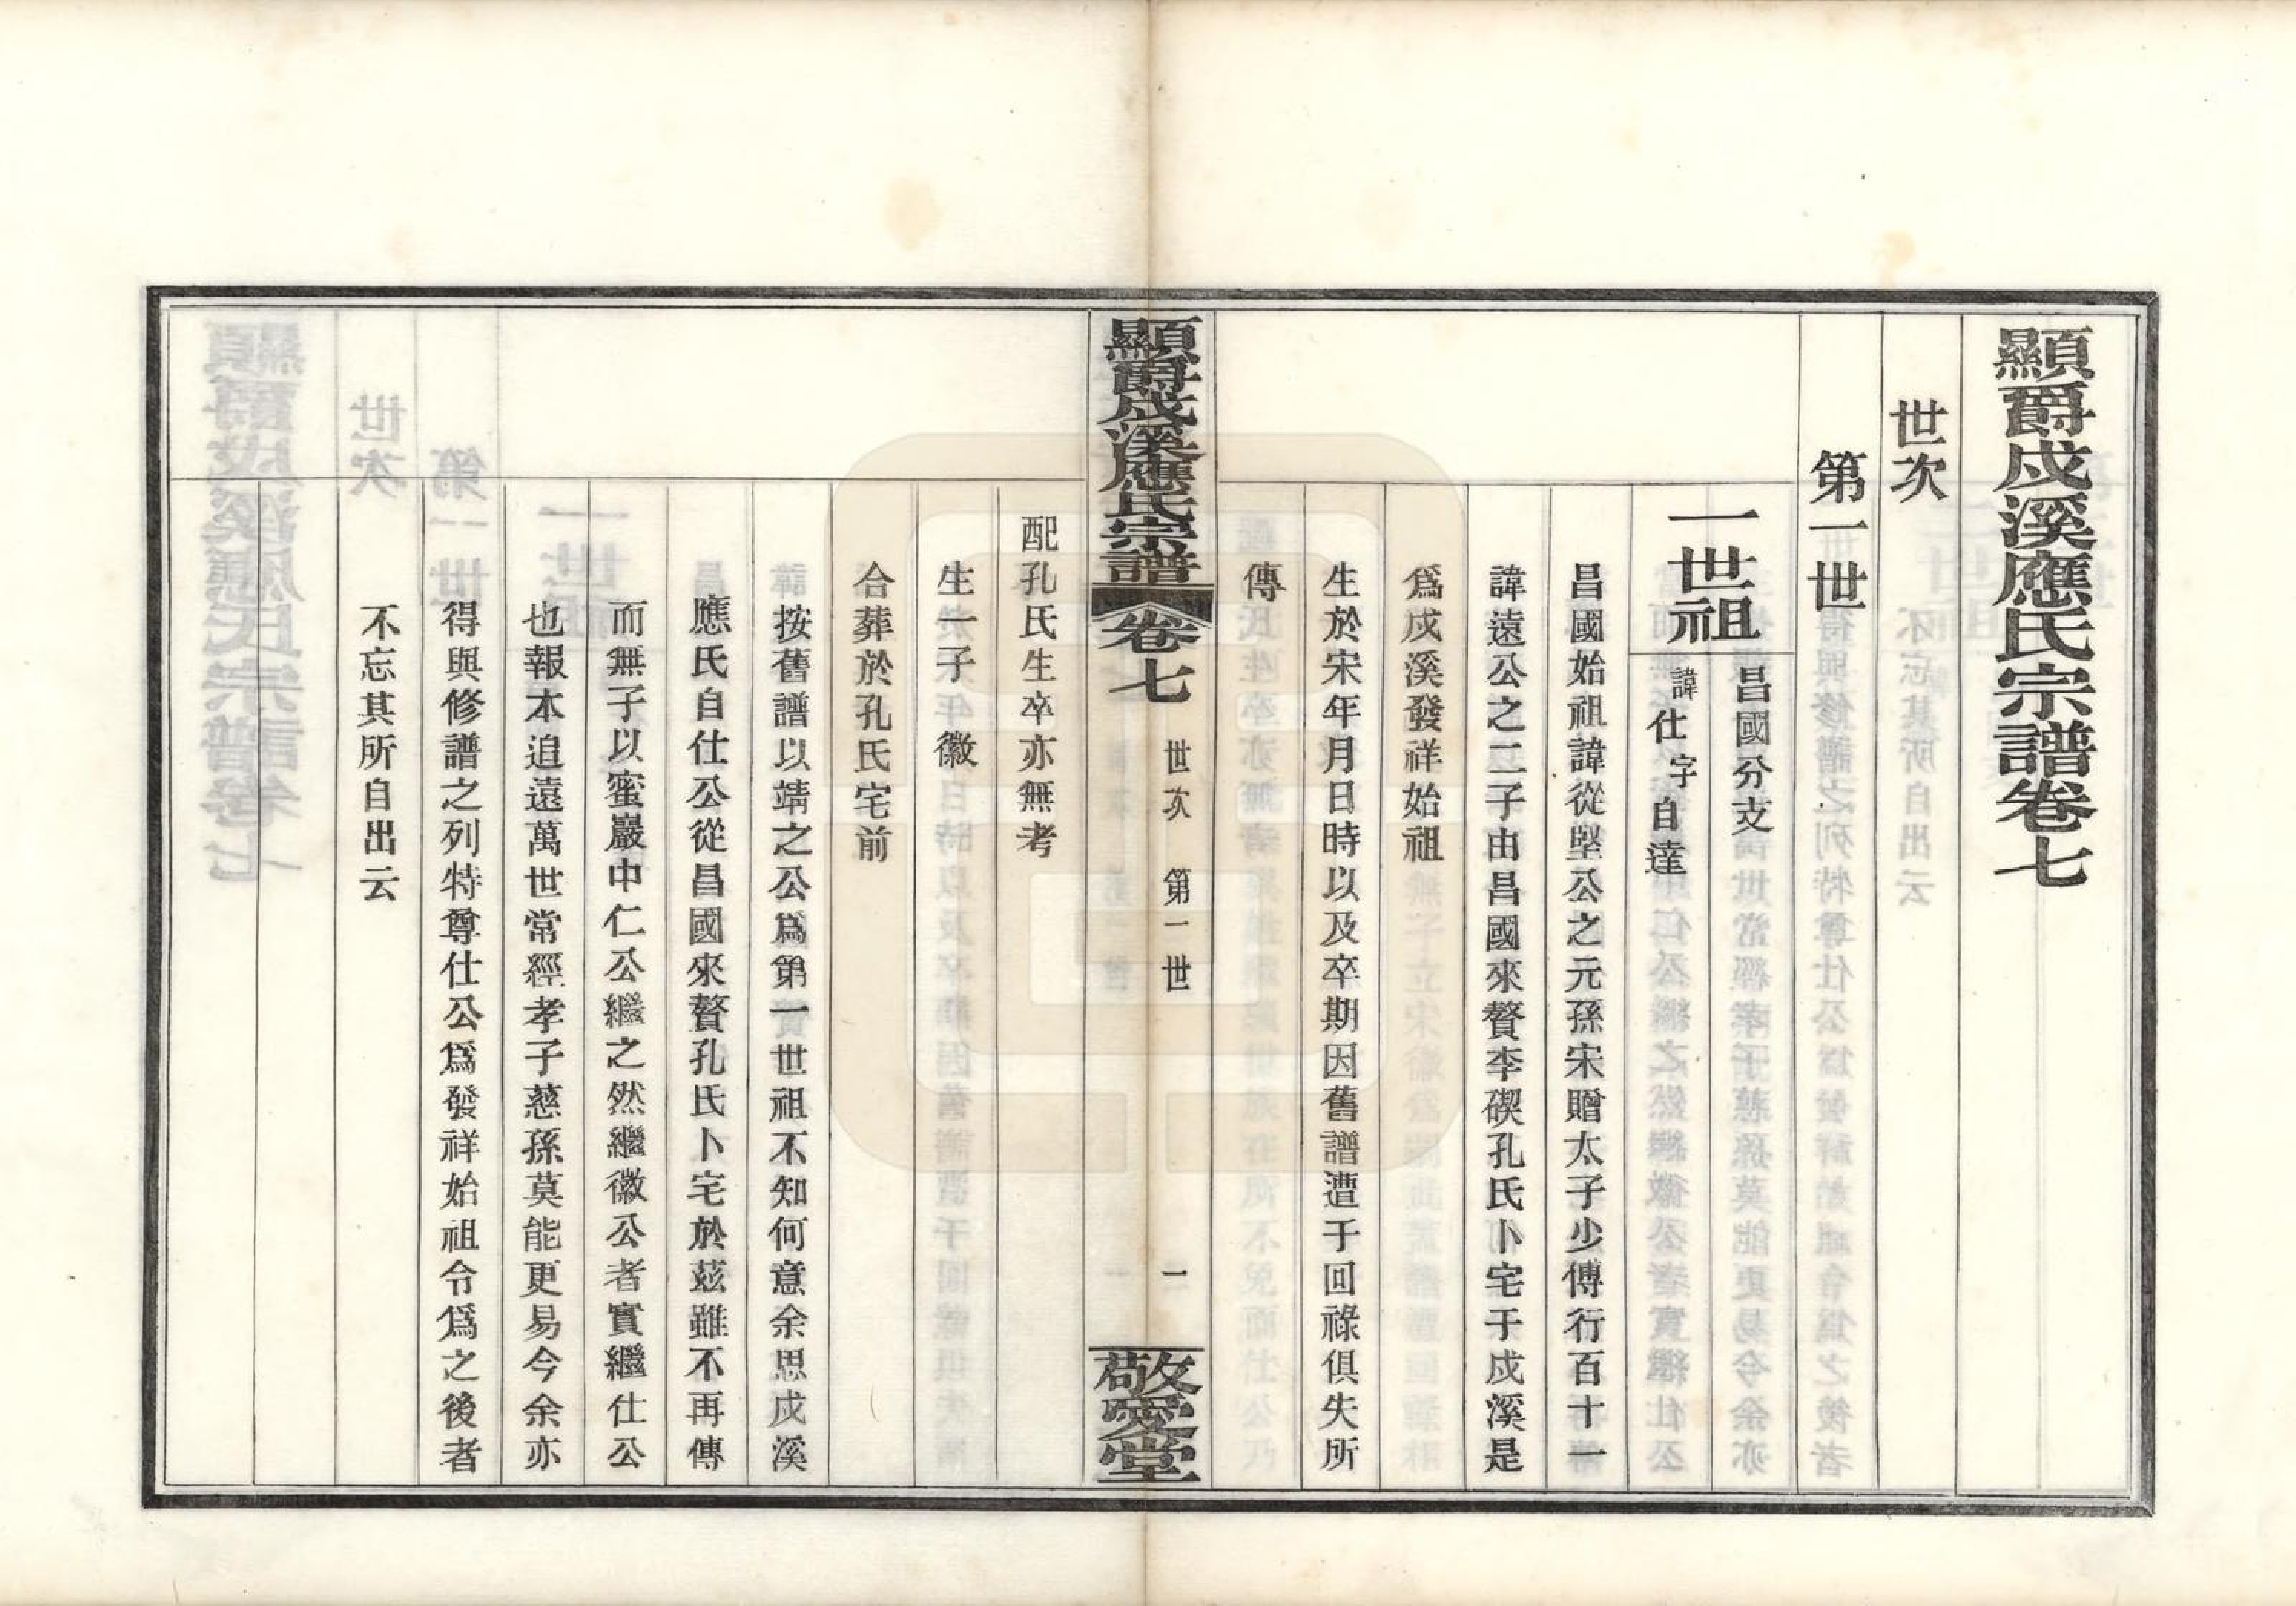 顯爵戍溪應氏宗譜卷七
世次
第一世
一世祖
昌國分支
諱仕字自達
昌國始祖諱從堅公之元孫宋贈太子少傅行百十一
諱遠公之二子由昌國來贅李碶孔氏卜宅于戍溪是
爲戍溪發祥始祖
生於宋年月日時以及卒期因舊譜遭于回祿俱失所
傳
顯爵戍溪應氏宗譜
卷七
世次
第一世
一
敬愛堂
配孔氏生卒亦無考
生一子徽
合葬於孔氏宅前
按舊譜以靖之公爲第一世祖不知何意余思戍溪
應氏自仕公從昌國來贅孔氏卜宅於茲雖不再傳
而無子以蜜巖中仁公繼之然繼徽公者實繼仕公
也報本追遠萬世常經孝子慈孫莫能更易今余亦
得與修譜之列特尊仕公爲發祥始祖令爲之後者
不忘其所自出云